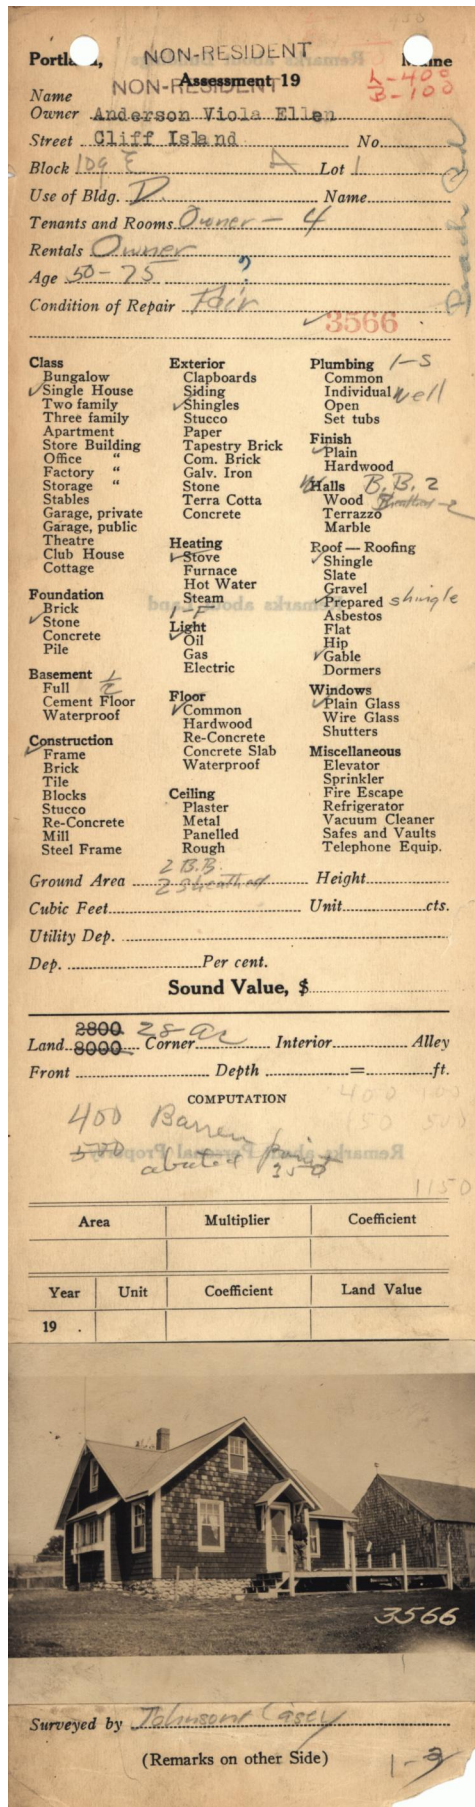 Portland, NON-RESIDENT Maine
NON-RESIDENT
Assessment 19
L-400
B-100
Name
Owner Anderson Viola Ellen
Street Cliff Island No.
Block 109 E Lot 1
Beach Rd
Use of Bldg. D. Name
Tenants and Rooms Owner - 4
Rentals Owner
Age 50-75 ?
Condition of Repair Fair
3566
Class
Bungalow
✓ Single House
Two family
Three family
Apartment
Store Building
Office "
Factory "
Storage "
Stables
Garage, private
Garage, public
Theatre
Club House
Cottage
Foundation
Brick
✓ Stone
Concrete
Pile
Basement 1/2
Full
Cement Floor
Waterproof
Construction
✓ Frame
Brick
Tile
Blocks
Stucco
Re-Concrete
Mill
Steel Frame
Exterior
Clapboards
Siding
✓ Shingles
Stucco
Paper
Tapestry Brick
Com. Brick
Galv. Iron
Stone
Terra Cotta
Concrete
Heating
✓ Stove
Furnace
Hot Water
Steam
1-F
Light
✓ Oil
Gas
Electric
Floor
✓ Common
Hardwood
Re-Concrete
Concrete Slab
Waterproof
Ceiling
Plaster
Metal
Panelled
Rough
2 B.B.
2 Sheathed
Plumbing 1-S
Common
Individual well
Open
Set tubs
Finish
✓ Plain
Hardwood
Halls B.B. 2
Wood
Terrazzo
Marble
Roof — Roofing
✓ Shingle
Slate
Gravel
✓ Prepared shingle
Asbestos
Flat
Hip
✓ Gable
Dormers
Windows
✓ Plain Glass
Wire Glass
Shutters
Miscellaneous
Elevator
Sprinkler
Fire Escape
Refrigerator
Vacuum Cleaner
Safes and Vaults
Telephone Equip.
Ground Area Height
Cubic Feet Unit cts.
Utility Dep.
Dep. Per cent.
Sound Value, $
2800 28 ac
Land 8000 Corner Interior Alley
Front Depth = ft.
COMPUTATION
400 Barren
500 abated point
350
400 100
150 500
1150
Area Multiplier Coefficient
Year Unit Coefficient Land Value
19
3566
Surveyed by Johnson Casey
(Remarks on other Side)
1-3